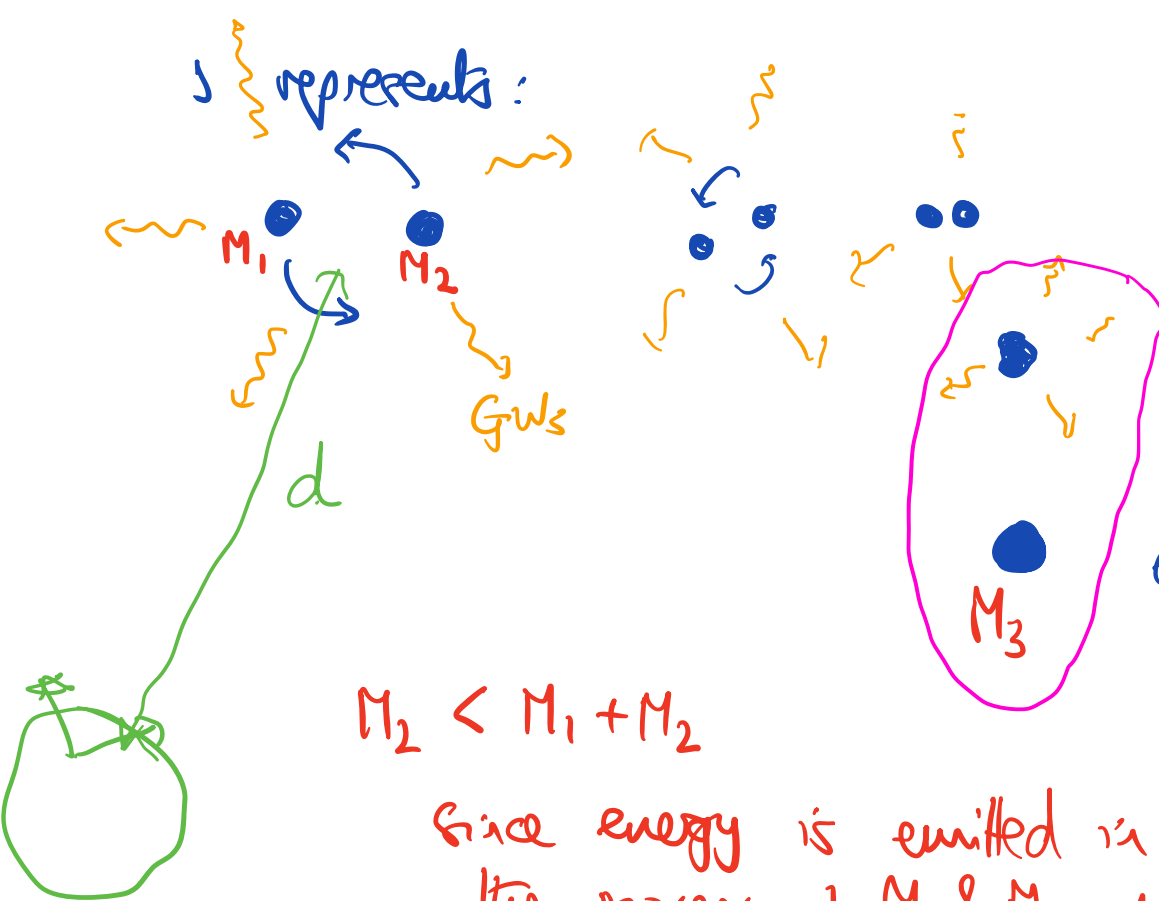 represents:
M1
M2
GWs
d
M3
M2 < M1 + M2
since energy is emitted in